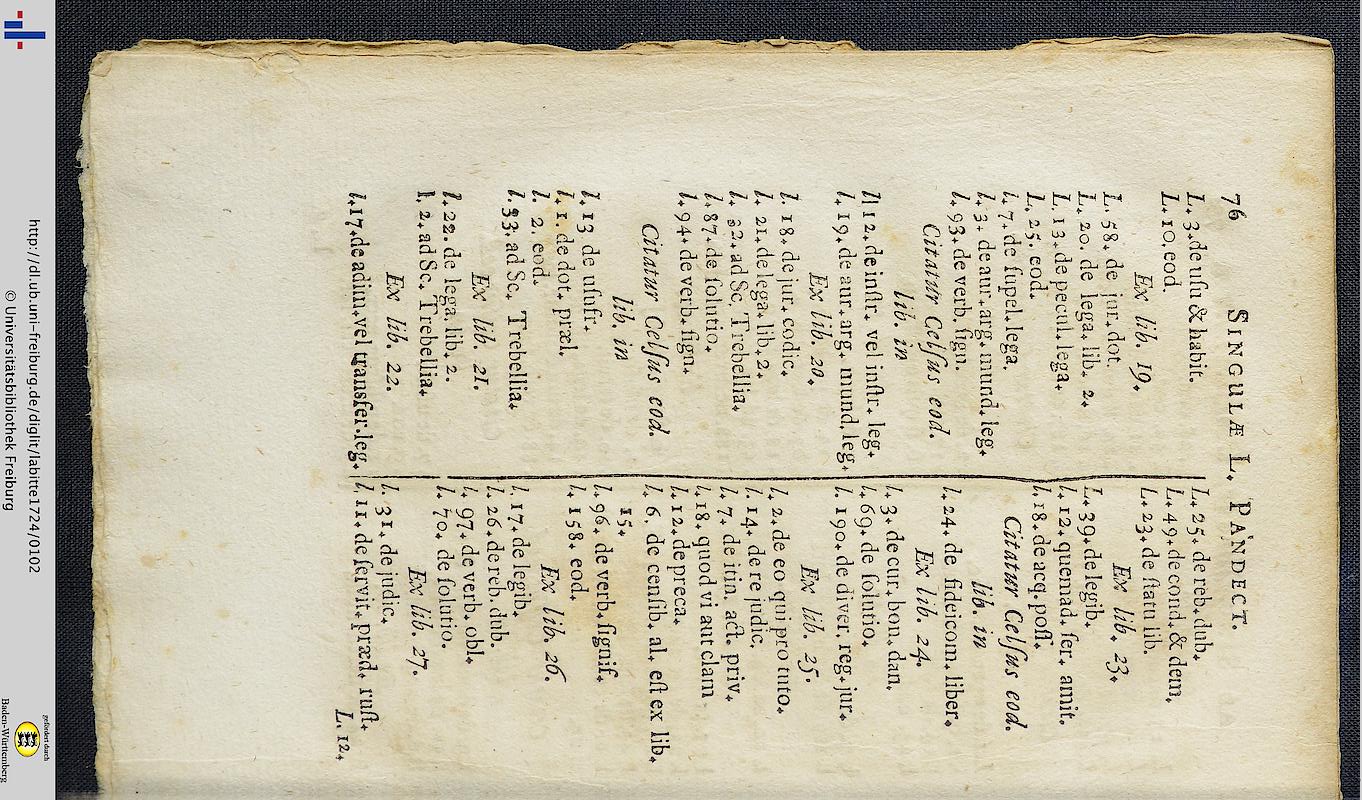 76 SINGULÆ L. PANDECT.
L. 3. de uſu & habit.
L. 10. eod.
Ex lib. 19.
L. 58. de jur. dot.
L. 20. de lega. lib. 2.
L. 13. de pecul. lega.
L. 25. eod.
l. 7. de ſupel. lega.
l. 3. de aur. arg. mund. leg.
l. 93. de verb. ſign.
Citatur Celſus eod.
lib. in
l. 12. de inſtr. vel inſtr. leg.
l. 19. de aur. arg. mund. leg.
Ex lib. 20.
l. 18. de jur. codic.
l. 21. de lega. lib. 2.
l. 32. ad Sc. Trebellia.
l. 87. de ſolutio.
l. 94. de verb. ſign.
Citatur Celſus eod.
lib. in
l. 13 de uſufr.
l. 1. de dot. præl.
l. 2. eod.
l. 33. ad Sc. Trebellia.
Ex lib. 21.
l. 22. de lega. lib. 2.
l. 2. ad Sc. Trebellia.
Ex lib. 22.
l. 17. de adim. vel transfer. leg.
L. 25. de reb. dub.
L. 49. de cond. & dem.
L. 23. de ſtatu lib.
Ex lib. 23.
L. 39. de legib.
l. 12. quemad. ſer. amit.
l. 18. de acq. poſſ.
Citatur Celſus eod.
lib. in
l. 24. de fideicom. liber.
Ex lib. 24.
l. 3. de cur. bon. dan.
l. 69. de ſolutio.
l. 190. de diver. reg. jur.
Ex lib. 25.
l. 2. de eo qui pro tuto.
l. 14. de re judic.
l. 7. de itin. act. priv.
l. 18. quod vi aut clam
l. 12. de preca.
l. 6. de cenſib. al. eſt ex lib.
15.
l. 96. de verb. ſignif.
l. 158. eod.
Ex lib. 26.
l. 17. de legib.
l. 26. de reb. dub.
l. 97. de verb. obl.
l. 70. de ſolutio.
Ex lib. 27.
l. 31. de judic.
l. 11. de ſervit. præd. ruſt.
L. 12.
http://dl.ub.uni-freiburg.de/diglit/labitte1724/0102
© Universitätsbibliothek Freiburg
gefördert durch
Baden-Württemberg